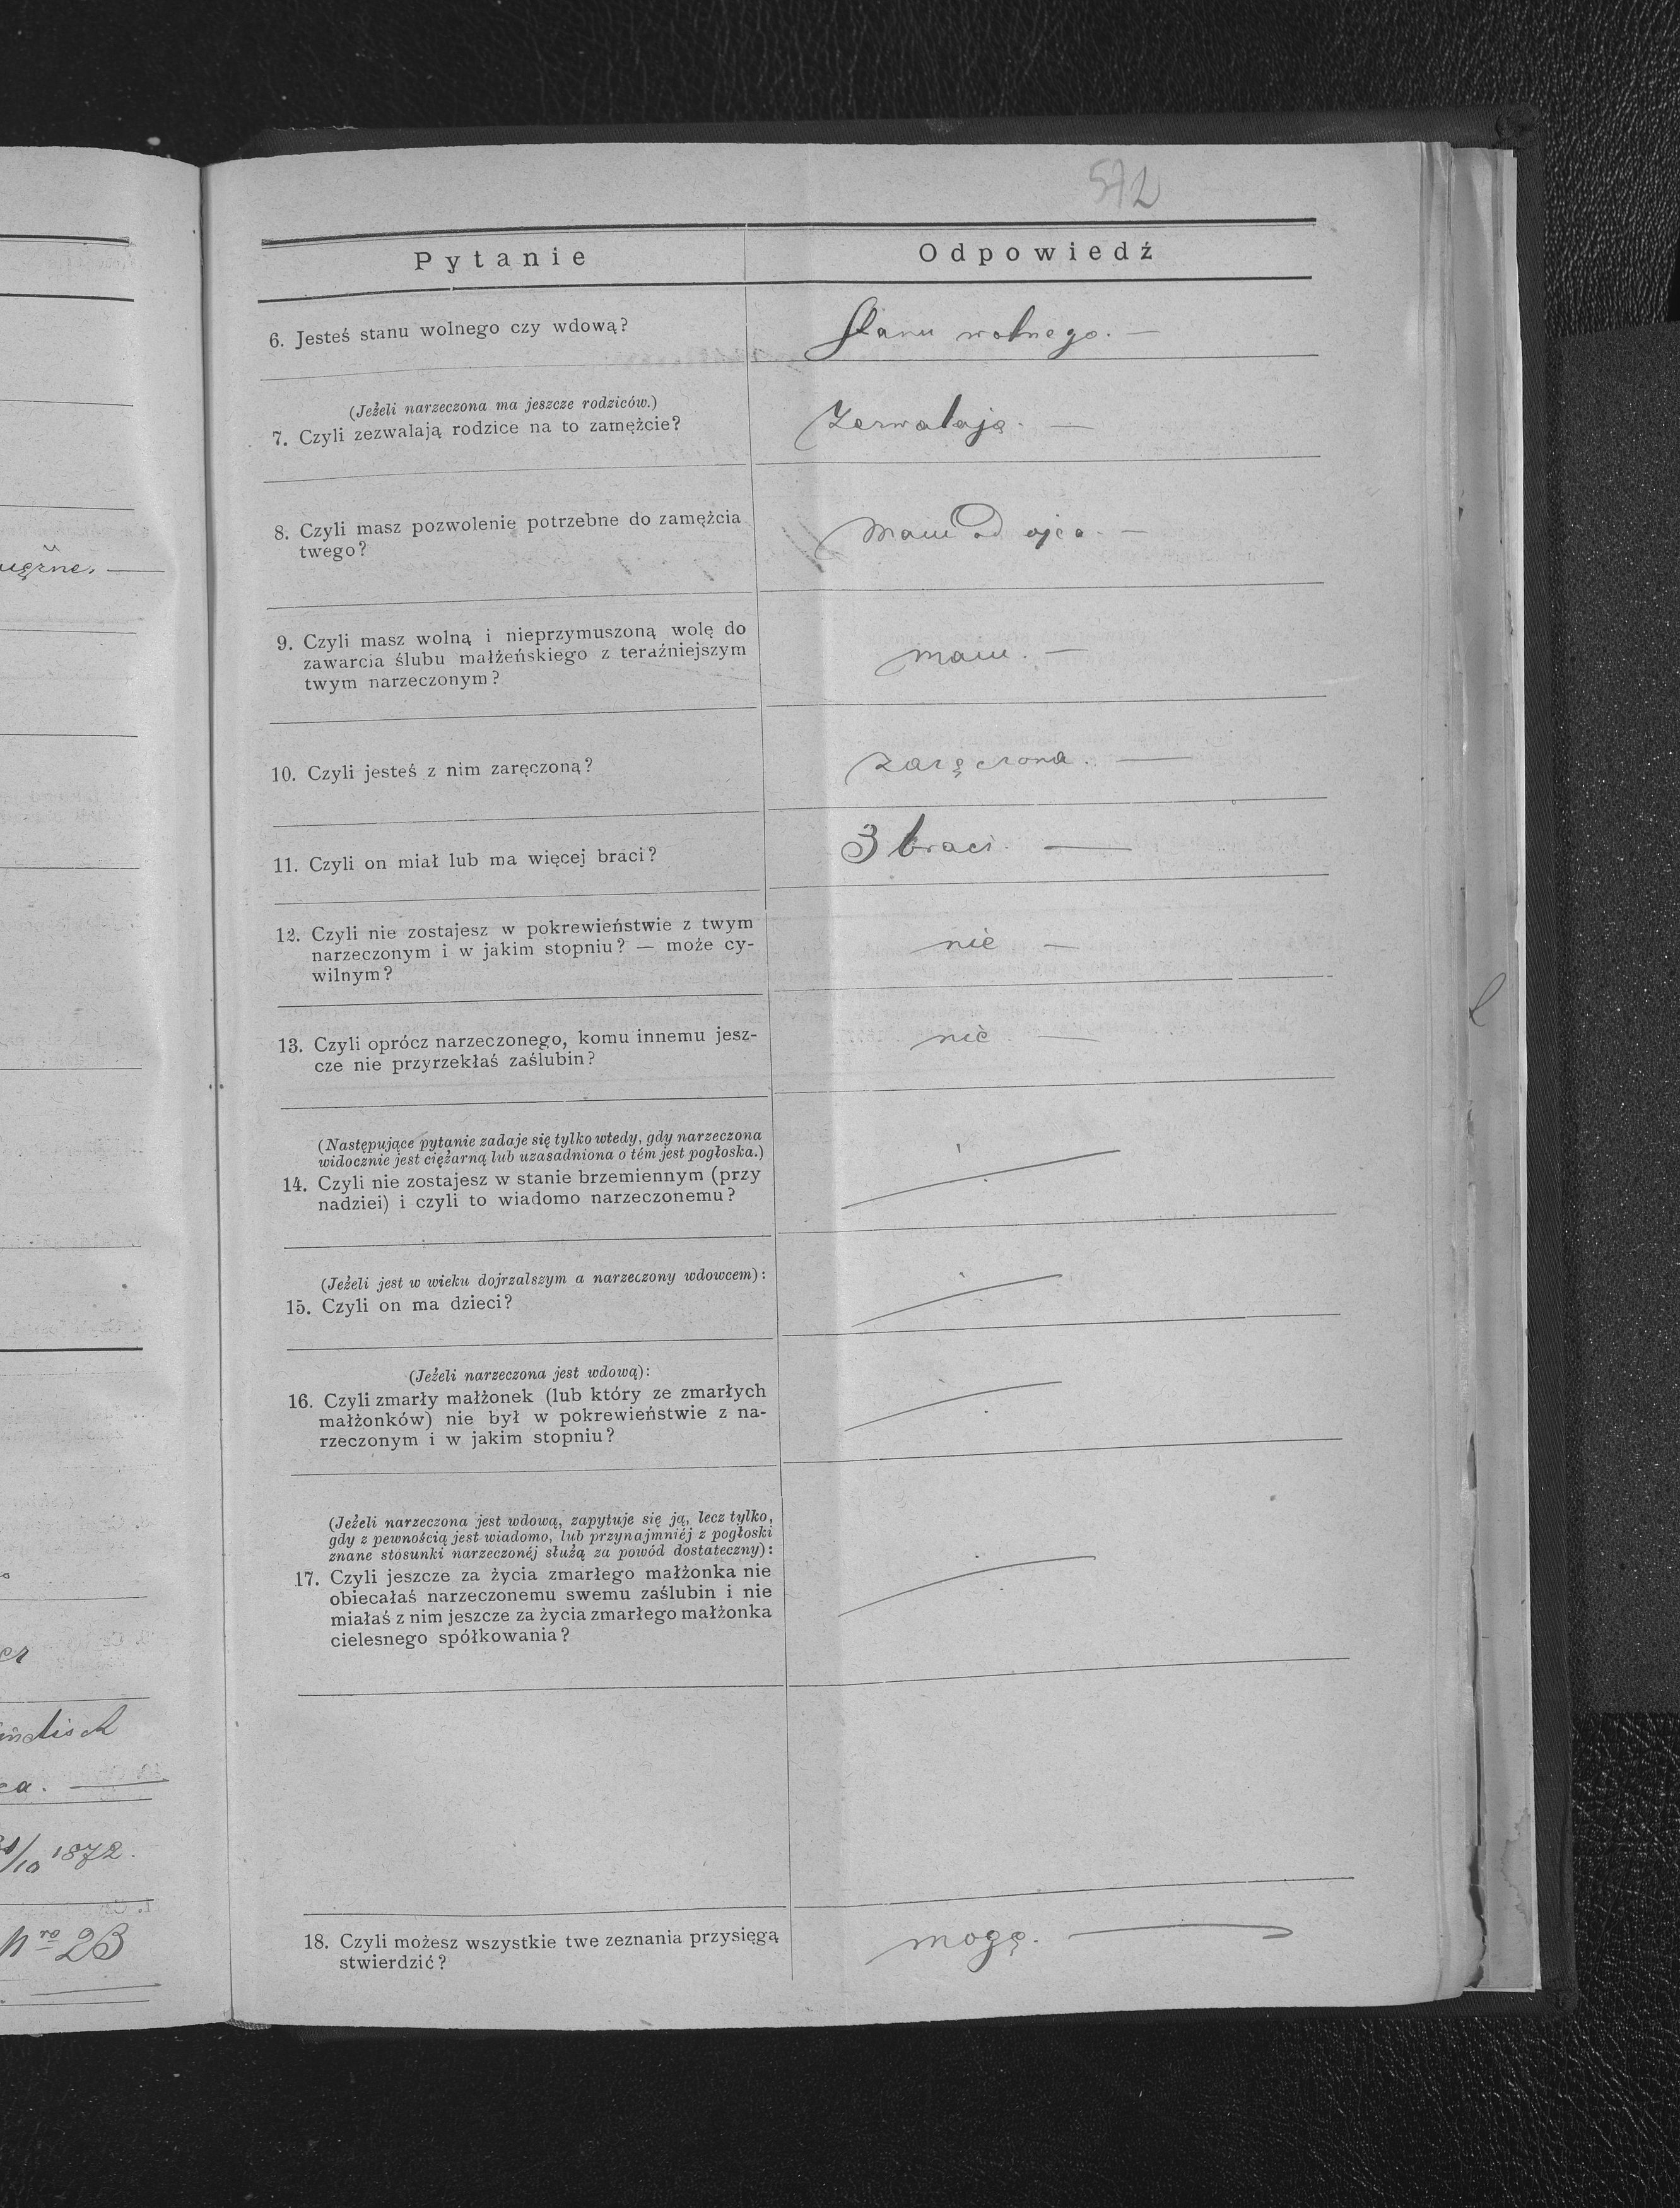 572
Pytanie
Odpowiedź
6. Jesteś stanu wolnego czy wdową?
Stanu wolnego. —
(Jeżeli narzeczona ma jeszcze rodziców.)
7. Czyli zezwalają rodzice na to zamężcie?
Zezwalają. —
8. Czyli masz pozwolenie potrzebne do zamężcia
twego?
Mam od ojca. —
9. Czyli masz wolną i nieprzymuszoną wolę do
zawarcia ślubu małżeńskiego z teraźniejszym
twym narzeczonym?
mam. —
10. Czyli jesteś z nim zaręczoną?
zaręczona. —
11. Czyli on miał lub ma więcej braci?
3 braci. —
12. Czyli nie zostajesz w pokrewieństwie z twym
narzeczonym i w jakim stopniu? — może cy-
wilnym?
nie —
13. Czyli oprócz narzeczonego, komu innemu jesz-
cze nie przyrzekłaś zaślubin?
nie. —
(Następujące pytanie zadaje się tylko wtedy, gdy narzeczona
widocznie jest ciężarną lub uzasadniona o tém jest pogłoska.)
14. Czyli nie zostajesz w stanie brzemiennym (przy
nadziei) i czyli to wiadomo narzeczonemu?
(Jeżeli jest w wieku dojrzalszym a narzeczony wdowcem):
15. Czyli on ma dzieci?
(Jeżeli narzeczona jest wdową):
16. Czyli zmarły małżonek (lub który ze zmarłych
małżonków) nie był w pokrewieństwie z na-
rzeczonym i w jakim stopniu?
(Jeżeli narzeczona jest wdową, zapytuje się ją, lecz tylko,
gdy z pewnością jest wiadomo, lub przynajmniéj z pogłoski
znane stosunki narzeczonéj służą za powód dostateczny):
17. Czyli jeszcze za życia zmarłego małżonka nie
obiecałaś narzeczonemu swemu zaślubin i nie
miałaś z nim jeszcze za życia zmarłego małżonka
cielesnego spółkowania?
18. Czyli możesz wszystkie twe zeznania przysięgą
stwierdzić?
mogę. —
/10 1872.
Nro 23